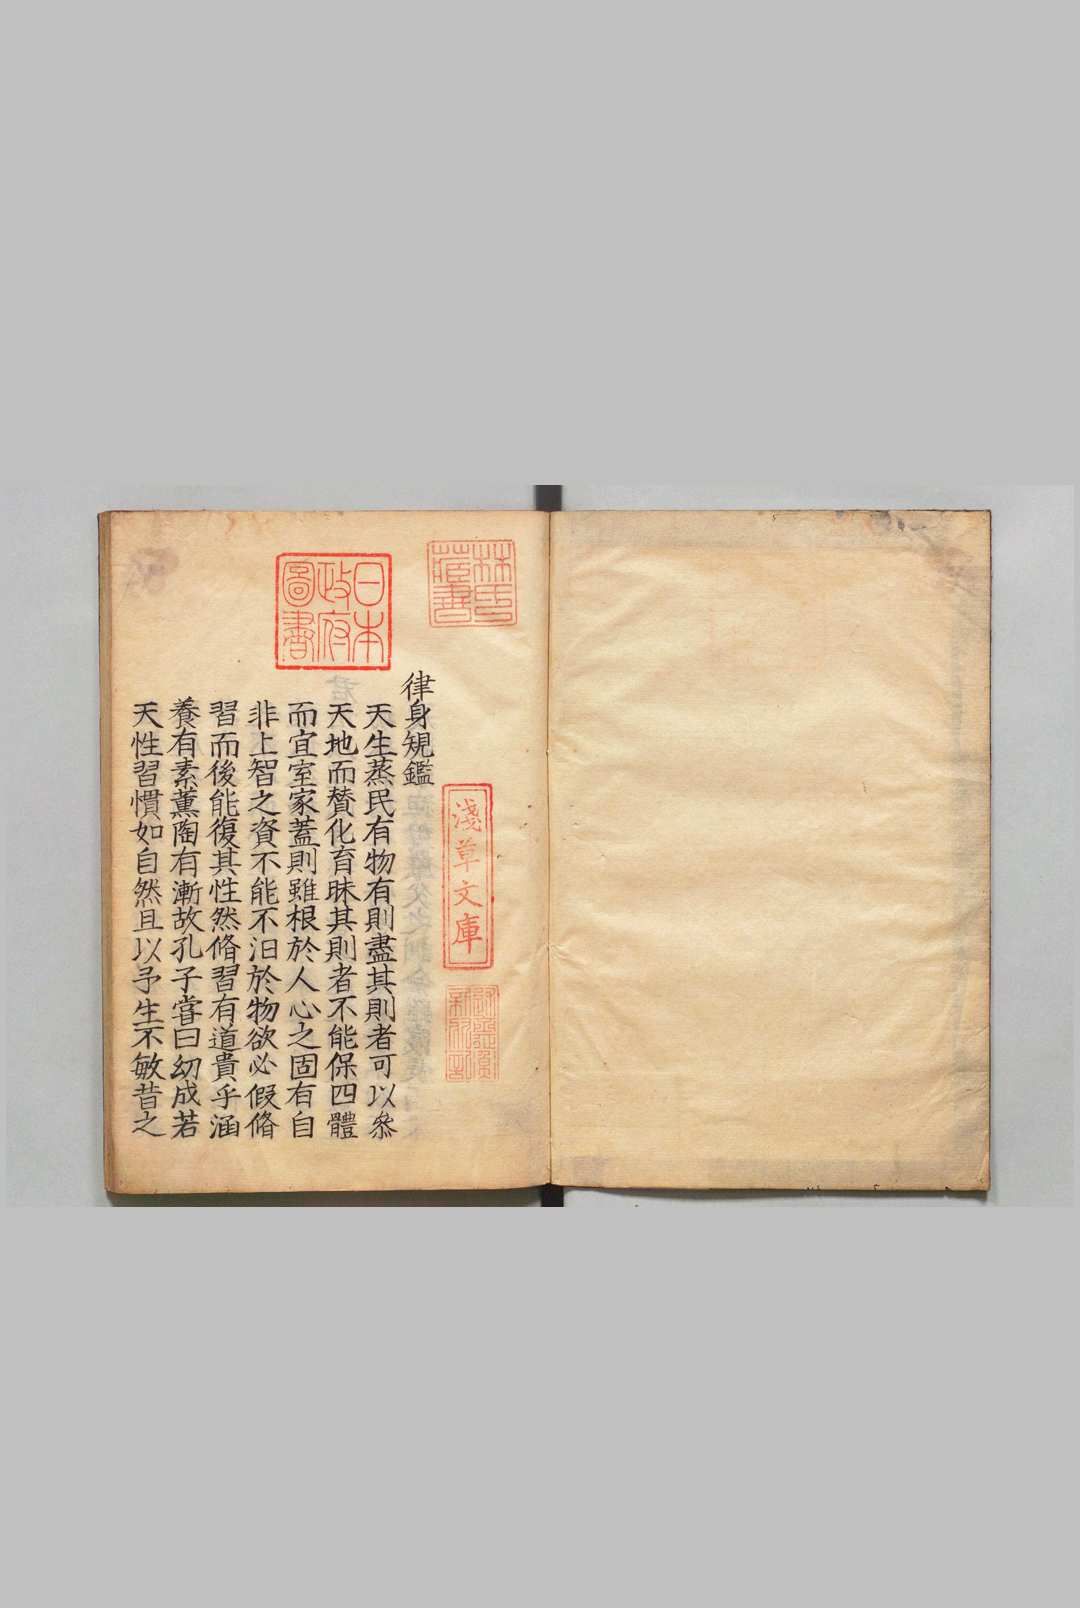 林氏藏書
淺草文庫
日本政府圖書
律身規鑑
天生蒸民有物有則盡其則者可以叅
天地而賛化育昧其則者不能保四體
而宜室家蓋則雖根於人心之固有自
非上智之資不能不汨於物欲必假脩
習而後能復其性然脩習有道貴乎涵
養有素薰陶有漸故孔子嘗曰幼成若
天性習慣如自然且以予生不敏昔之